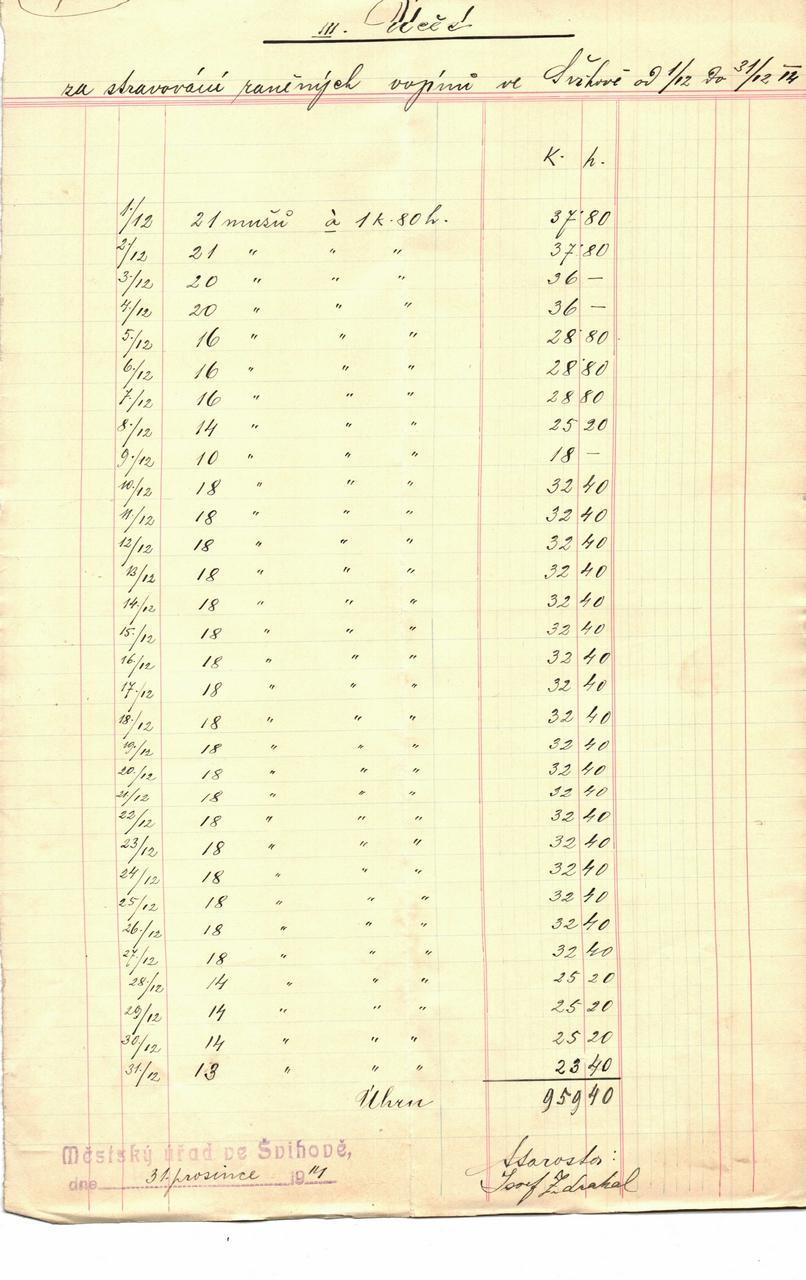 III. Účet
za stravování raněných vojínů ve Švihově od 1/12 do 31/12 14
K. h.
1./12 21 mužů à 1 K. 80 h. 37 80
2/12 21 " " " 37 80
3./12 20 " " " 36 —
4./12 20 " " " 36 —
5./12 16 " " " 28 80
6./12 16 " " " 28 80
7./12 16 " " " 28 80
8./12 14 " " " 25 20
9./12 10 " " " 18 —
10./12 18 " " " 32 40
11./12 18 " " " 32 40
12/12 18 " " " 32 40
13/12 18 " " " 32 40
14./12 18 " " " 32 40
15./12 18 " " " 32 40
16./12 18 " " " 32 40
17./12 18 " " " 32 40
18./12 18 " " " 32 40
19./12 18 " " " 32 40
20./12 18 " " " 32 40
21./12 18 " " " 32 40
22/12 18 " " " 32 40
23/12 18 " " " 32 40
24/12 18 " " " 32 40
25/12 18 " " " 32 40
26./12 18 " " " 32 40
27./12 18 " " " 32 40
28./12 14 " " " 25 20
29/12 14 " " " 25 20
30/12 14 " " " 25 20
31./12 13 " " " 23 40
Úhrn 959 40
Městský úřad ve Švihově,
dne 31. prosince 19
Starosta:
Josef Zdrahal